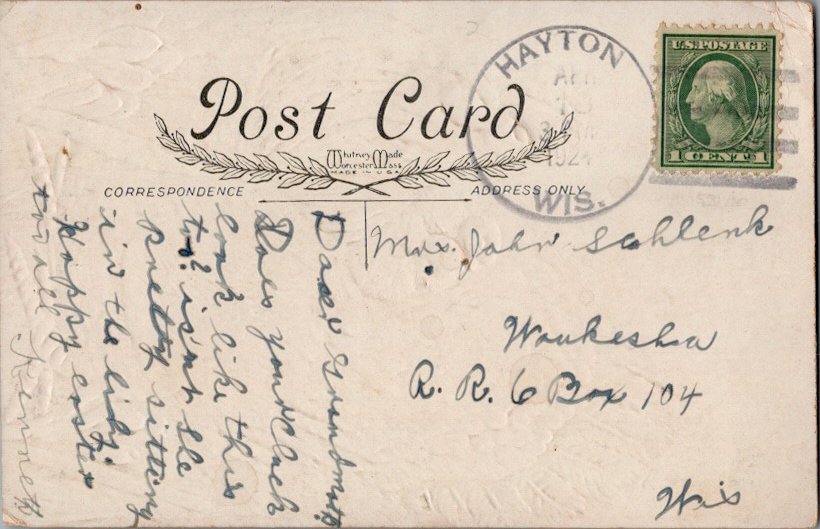 Post Card
Whitney Made
Worcester Mass
MADE IN U.S.A.
CORRESPONDENCE
ADDRESS ONLY
HAYTON
APR
1924
WIS.
U.S. POSTAGE
1 CENT 1
Mrs. John Schlenk
Waukesha
R. R. 6 Box 104
Wis
Dear Grandmoth
Does your Cluck
look like this
to? is'nt she
pretty sitting
in the lily
Happy easter
to all
Kenneth